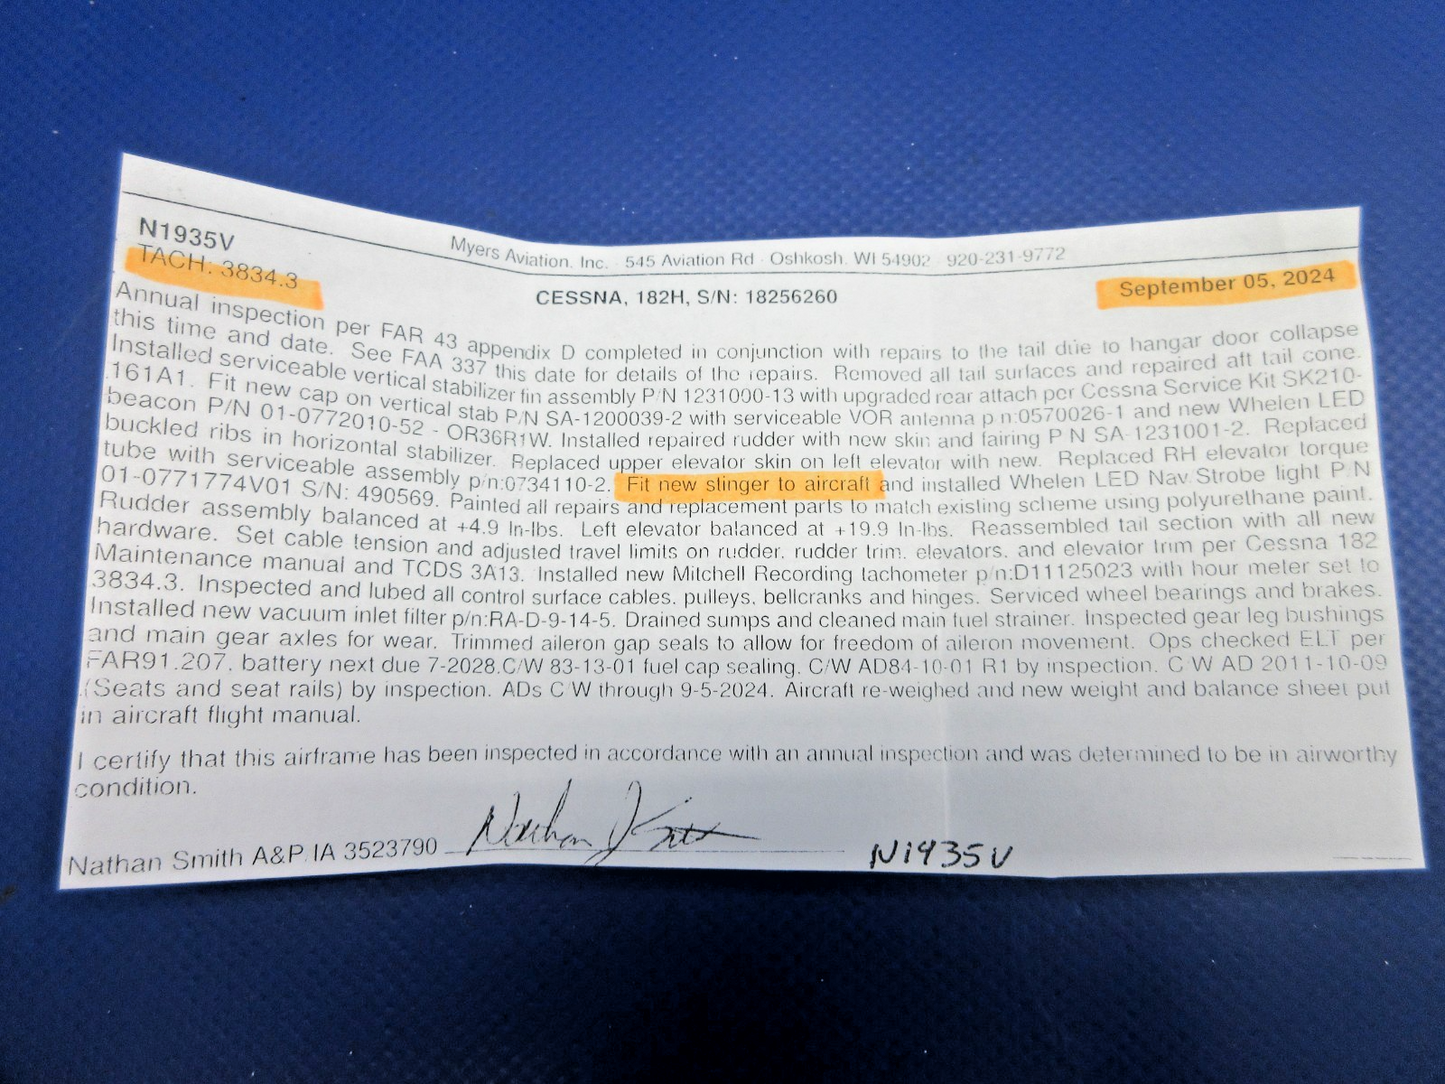 N1935V
Myers Aviation, Inc. · 545 Aviation Rd · Oshkosh, WI 54902 · 920-231-9772
TACH: 3834.3
CESSNA, 182H, S/N: 18256260
September 05, 2024
Annual inspection per FAR 43 appendix D completed in conjunction with repairs to the tail due to hangar door collapse
this time and date. See FAA 337 this date for details of the repairs. Removed all tail surfaces and repaired aft tail cone.
Installed serviceable vertical stabilizer fin assembly P/N 1231000-13 with upgraded rear attach per Cessna Service Kit SK210-
161A1. Fit new cap on vertical stab P/N SA-1200039-2 with serviceable VOR antenna p n:0570026-1 and new Whelen LED
beacon P/N 01-0772010-52 - OR36R1W. Installed repaired rudder with new skin and fairing P N SA-1231001-2. Replaced
buckled ribs in horizontal stabilizer. Replaced upper elevator skin on left elevator with new. Replaced RH elevator torque
tube with serviceable assembly p/n:0734110-2. Fit new stinger to aircraft and installed Whelen LED Nav Strobe light P N
01-0771774V01 S/N: 490569. Painted all repairs and replacement parts to match existing scheme using polyurethane paint.
Rudder assembly balanced at +4.9 In-lbs. Left elevator balanced at +19.9 In-lbs. Reassembled tail section with all new
hardware. Set cable tension and adjusted travel limits on rudder, rudder trim, elevators, and elevator trim per Cessna 182
Maintenance manual and TCDS 3A13. Installed new Mitchell Recording tachometer p/n:D11125023 with hour meter set to
3834.3. Inspected and lubed all control surface cables, pulleys, bellcranks and hinges. Serviced wheel bearings and brakes.
Installed new vacuum inlet filter p/n:RA-D-9-14-5. Drained sumps and cleaned main fuel strainer. Inspected gear leg bushings
and main gear axles for wear. Trimmed aileron gap seals to allow for freedom of aileron movement. Ops checked ELT per
FAR91.207, battery next due 7-2028.C/W 83-13-01 fuel cap sealing. C/W AD84-10-01 R1 by inspection. C W AD 2011-10-09
(Seats and seat rails) by inspection. ADs C W through 9-5-2024. Aircraft re-weighed and new weight and balance sheet put
in aircraft flight manual.
I certify that this airframe has been inspected in accordance with an annual inspection and was determined to be in airworthy
condition.
Nathan Smith A&P IA 3523790
N1935V